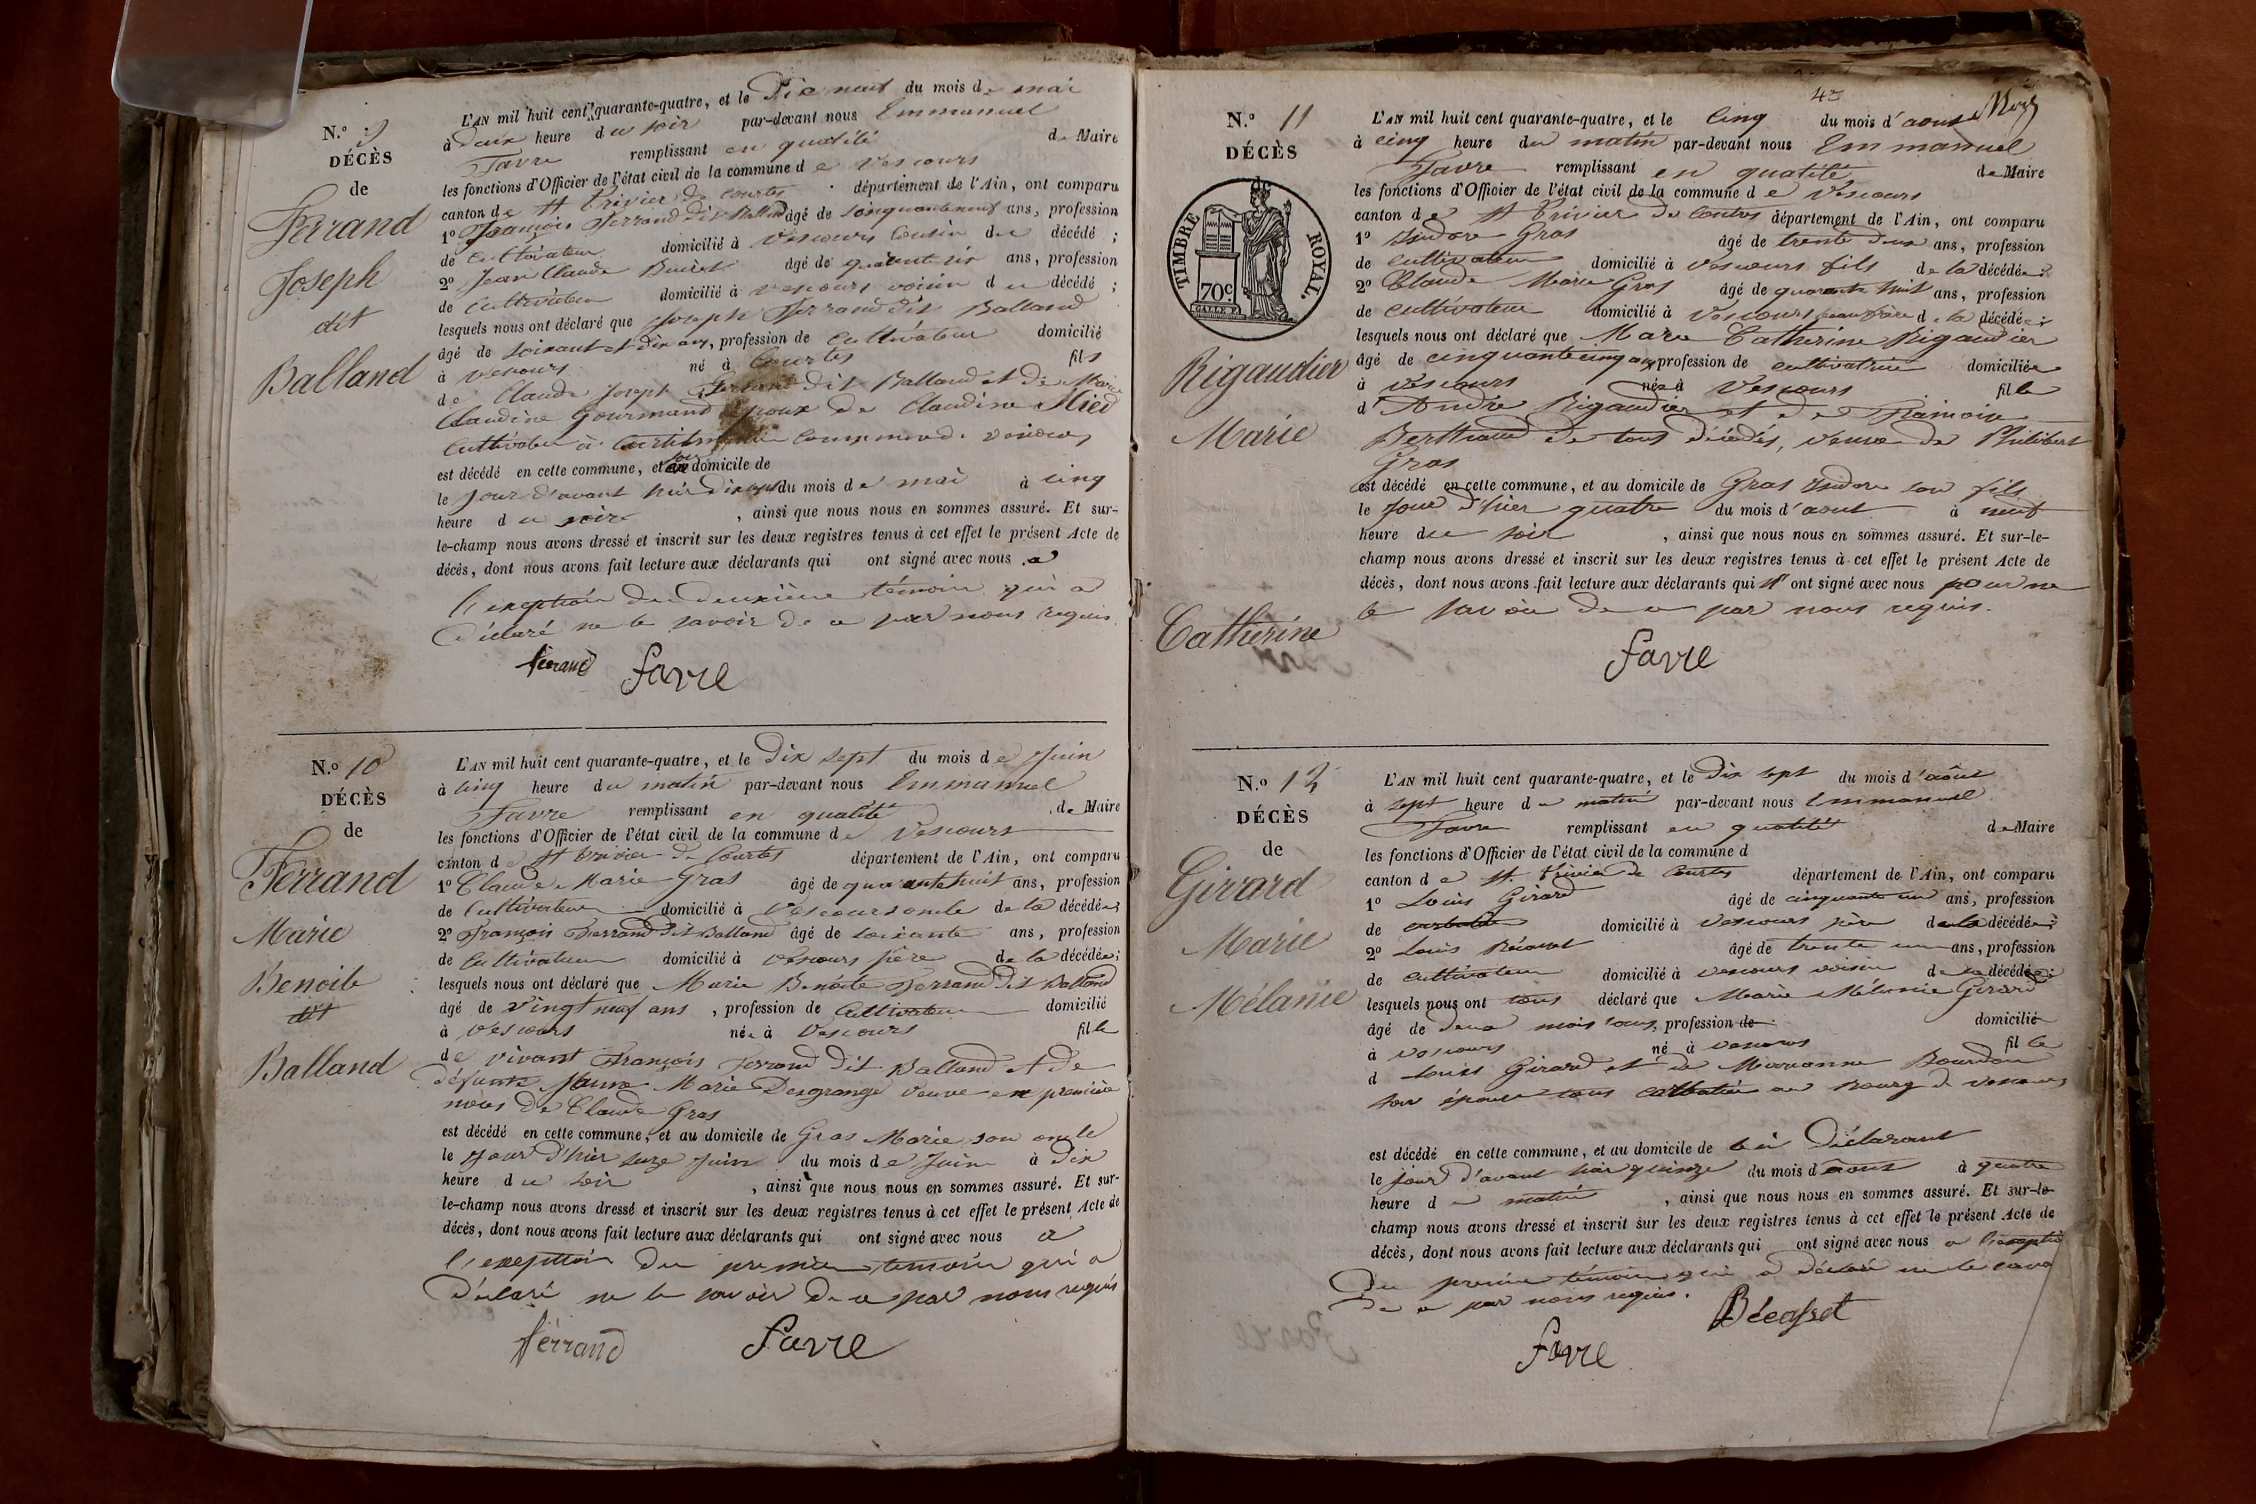 N.º 9
DÉCÈS
de
Ferrand
Joseph
dit
Balland
L'AN mil huit cent quarante-quatre, et le Dix neuf du mois de mai
à deux heure du soir par-devant nous Emmanuel
Favre remplissant en qualité de Maire
les fonctions d'Officier de l'état civil de la commune de Vescours
canton de St Trivier de Courtes département de l'Ain, ont comparu
1º François Ferrand dit Balland âgé de soixante ans, profession
de cultivateur domicilié à Vescours Cousin du décédé ;
2º Jean Claude âgé de quarante six ans, profession
de cultivateur domicilié à Vescours voisin du décédé ;
lesquels nous ont déclaré que Joseph Ferrand dit Balland
âgé de soixante et dix ans, profession de cultivateur domicilié
à Vescours né à Courtes fils
de Claude Joseph Ferrand dit Balland et de Marie
Claudine Gourmand époux de Claudine
cultivateur à commune de Vescours
est décédé en cette commune, et domicile de
le jour d'avant hier dix sept du mois de mai à cinq
heure du soir , ainsi que nous nous en sommes assuré. Et sur-
le-champ nous avons dressé et inscrit sur les deux registres tenus à cet effet le présent Acte de
décès, dont nous avons fait lecture aux déclarants qui ont signé avec nous a
l'exception du deuxième témoin qui a
déclaré ne le savoir de ce par nous requis
ferrand favre
N.º 10
DÉCÈS
de
Ferrand
Marie
Benoite
dit
Balland
L'AN mil huit cent quarante-quatre, et le Dix sept du mois de Juin
à cinq heure du matin par-devant nous Emmanuel
Favre remplissant en qualité de Maire
les fonctions d'Officier de l'état civil de la commune de Vescours
canton de St Trivier de Courtes département de l'Ain, ont comparu
1º Claude Marie Gras âgé de quarante huit ans, profession
de Cultivateur domicilié à Vescours oncle de la décédée;
2º François Ferrand dit Balland âgé de soixante ans, profession
de Cultivateur domicilié à Vescours père de la décédée;
lesquels nous ont déclaré que Marie Benoite Ferrand dit Balland
âgé de vingt neuf ans , profession de Cultivateur domicilié
à Vescours née à Vescours fille
de vivant François Ferrand dit Balland et de
défunte Marie Desgrange Veuve en première
noces de Claude Gras
est décédé en cette commune, et au domicile de Gras Marie son oncle
le Jour d'hier seize Juin du mois de Juin à dix
heure du soir , ainsi que nous nous en sommes assuré. Et sur-
le-champ nous avons dressé et inscrit sur les deux registres tenus à cet effet le présent Acte de
décès, dont nous avons fait lecture aux déclarants qui ont signé avec nous a
l'exception du premier témoin qui a
Déclaré ne le savoir de ce par nous requis
ferrand favre
43
N.º 11
DÉCÈS
de
TIMBRE ROYAL.
70c.
Rigaudier
Marie
Catherine
L'AN mil huit cent quarante-quatre, et le cinq du mois d'aout
à cinq heure du matin par-devant nous Emmanuel
Favre remplissant en qualité de Maire
les fonctions d'Officier de l'état civil de la commune de Vescours
canton de St Trivier de Courtes département de l'Ain, ont comparu
1º Isidore Gras âgé de trente deux ans, profession
de cultivateur domicilié à Vescours fils de la décédée;
2º Claude Marie Gras âgé de quarante huit ans, profession
de cultivateur domicilié à Vescours beau frère de la décédée;
lesquels nous ont déclaré que Marie Catherine Rigaudier
âgé de cinquante cinq ans profession de cultivatrice domiciliée
à Vescours née à Vescours fille
d'André Rigaudier et de
de tous décédés, veuve de Philibert
Gras
est décédé en cette commune, et au domicile de Gras Isidore son fils
le Jour d'hier quatre du mois d'aout à neuf
heure du soir , ainsi que nous nous en sommes assuré. Et sur-le-
champ nous avons dressé et inscrit sur les deux registres tenus à cet effet le présent Acte de
décès, dont nous avons fait lecture aux déclarants qui n'ont signé avec nous pour ne
le savoir de ce par nous requis.
favre
N.º 12
DÉCÈS
de
Girard
Marie
Mélanie
L'AN mil huit cent quarante-quatre, et le Dix sept du mois d'août
à sept heure du matin par-devant nous Emmanuel
Favre remplissant en qualité de Maire
les fonctions d'Officier de l'état civil de la commune d
canton de St. Trivier de Courtes département de l'Ain, ont comparu
1º Louis Girard âgé de cinquante un ans, profession
de domicilié à Vescours père de la décédée;
2º Louis Bécasset âgé de trente un ans, profession
de cultivateur domicilié à Vescours voisin de la décédée;
lesquels nous ont tous déclaré que Marie Mélanie Girard
âgé de deux mois profession de domicilié
à Vescours né à Vescours fille
d Louis Girard et de Marianne Bourdon
son épouse tous au Bourg de Vescours
est décédé en cette commune, et au domicile de lui Déclarant
le jour d'avant hier quinze du mois d'aout à quatre
heure du matin , ainsi que nous nous en sommes assuré. Et sur-le-
champ nous avons dressé et inscrit sur les deux registres tenus à cet effet le présent Acte de
décès, dont nous avons fait lecture aux déclarants qui ont signé avec nous a l'exception
du premier témoin qui a déclaré ne le savoir
de ce par nous requis.
Bécasset
favre